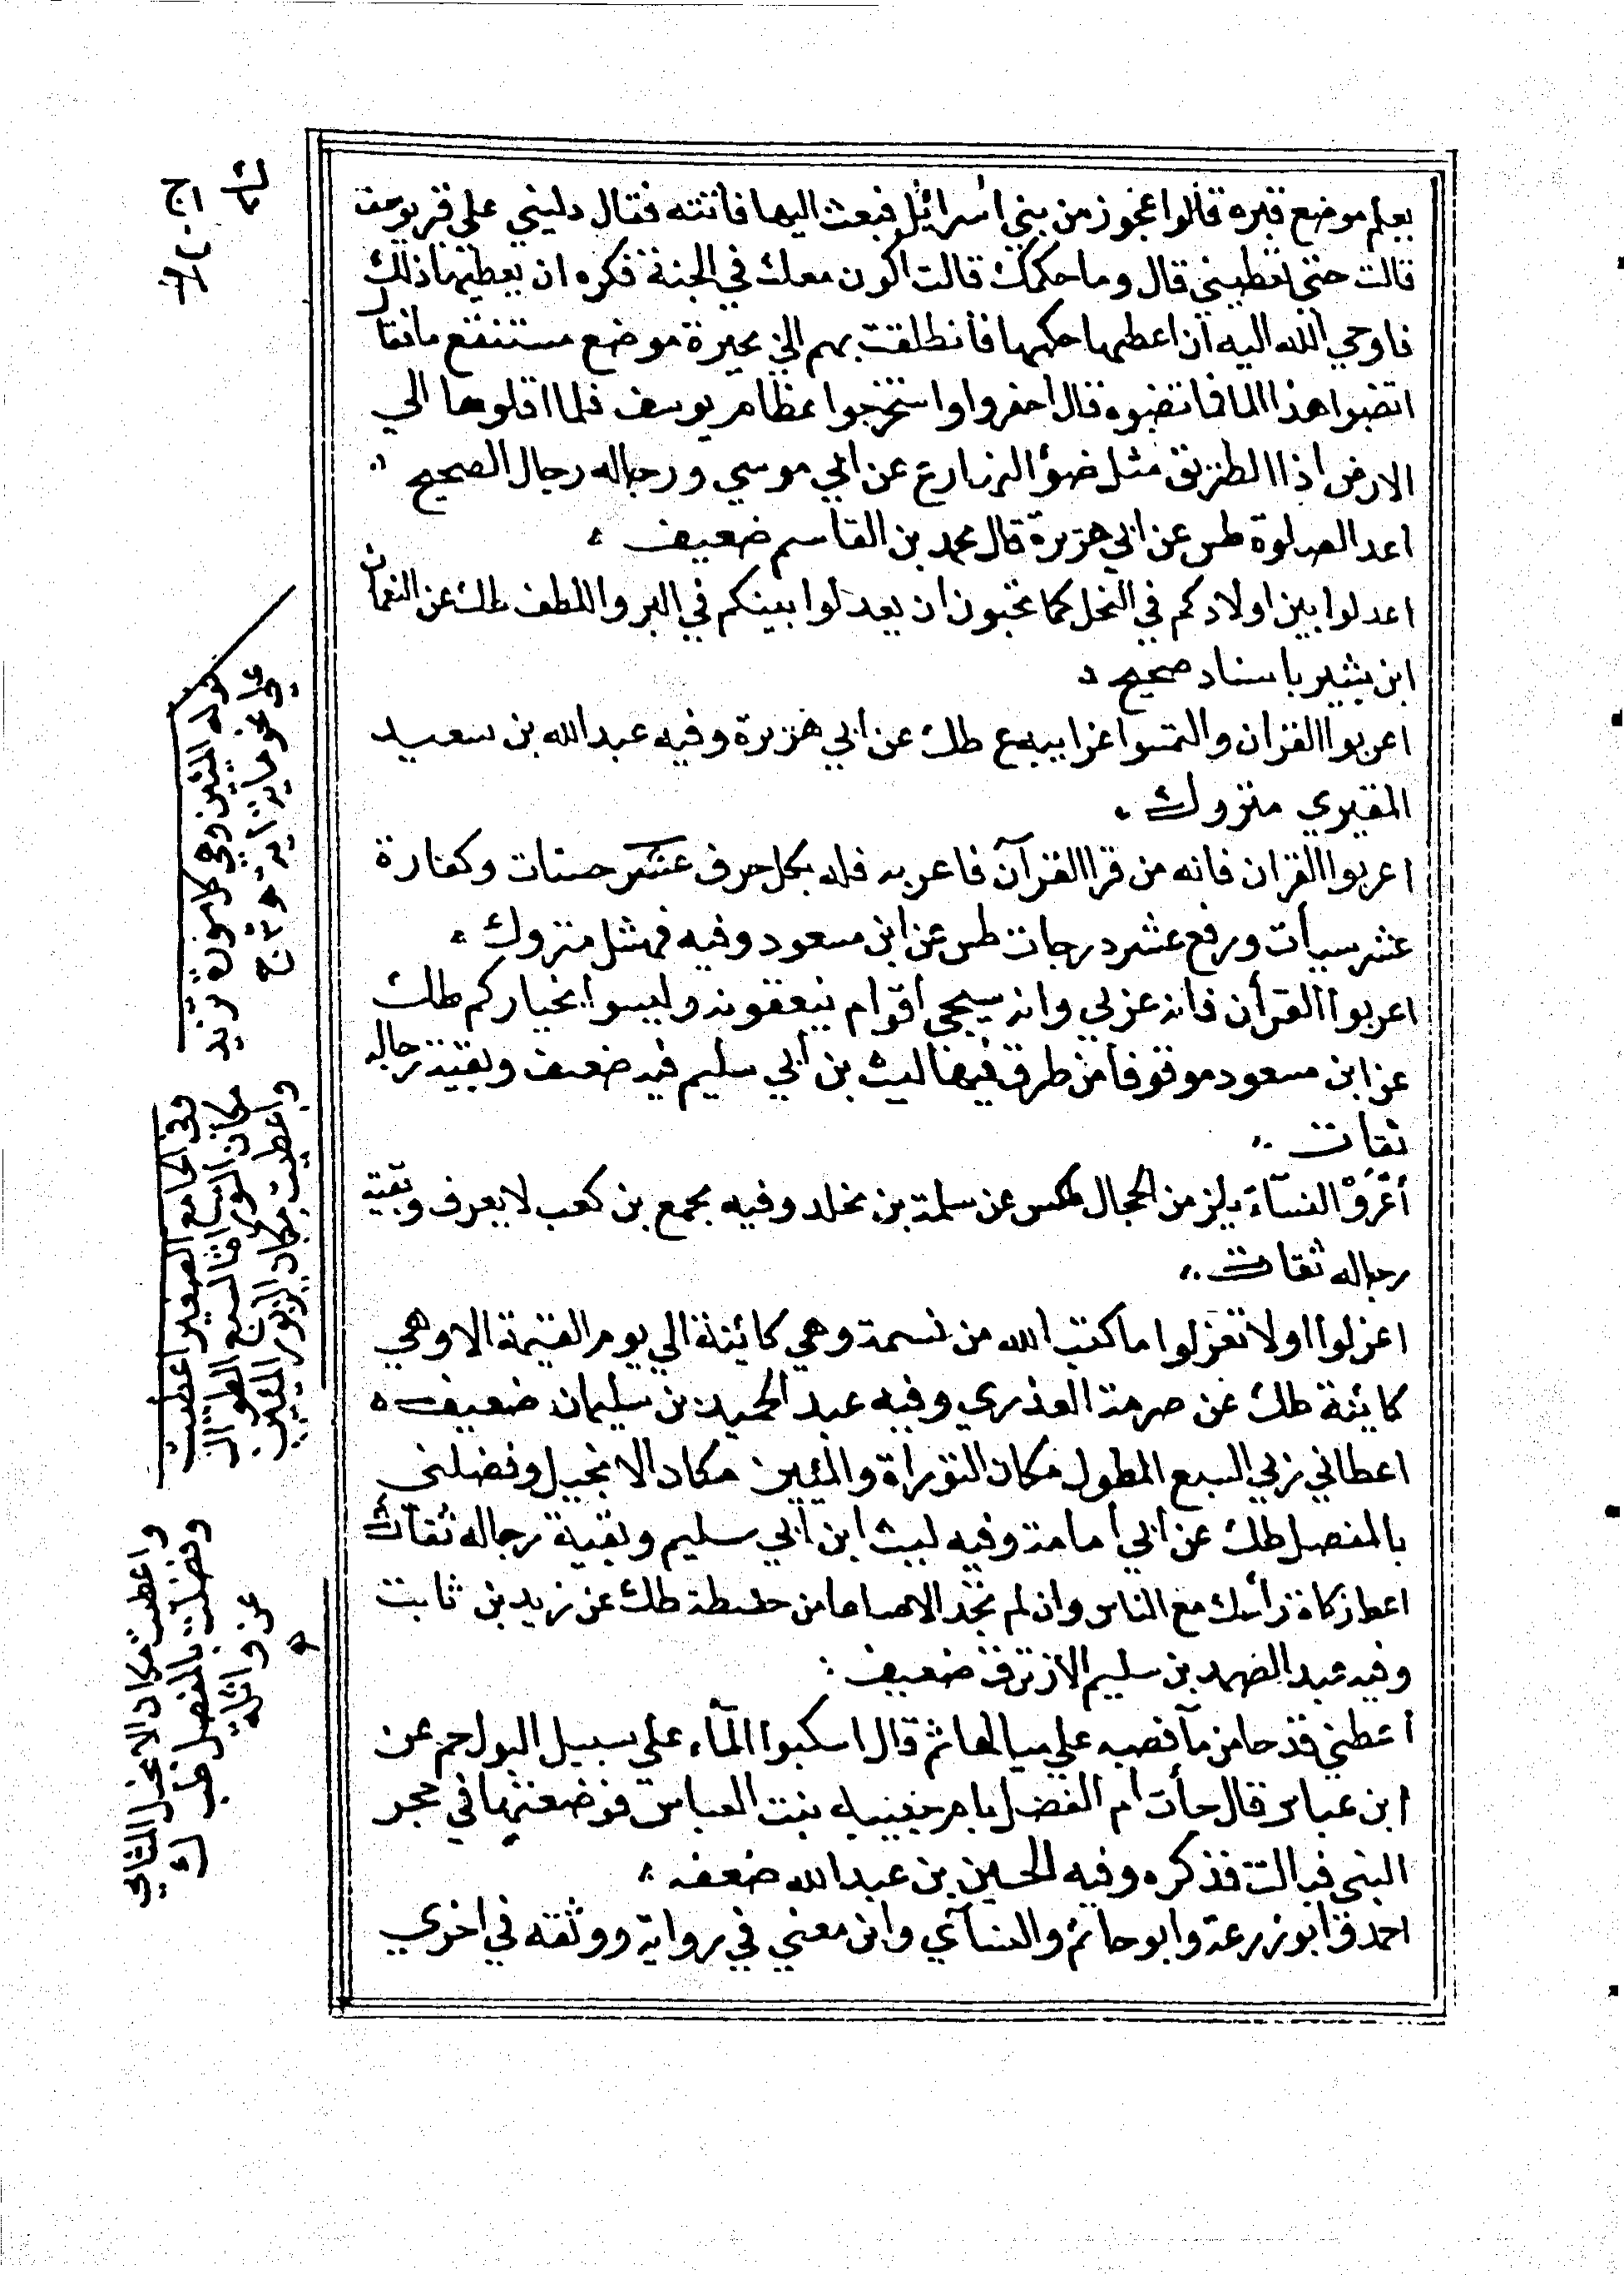 يعلم موضع قبره قالوا عجوز من بني اسرائيل فبعث اليها فاتته فقال دليني على قبر يوسف
قالت حتى تعطيني قال وما حكمك قالت اكون معك في الجنة فكره ان يعطيها ذلك
فاوحي الله اليه ان اعطها حكمها فانطلقت بهم الي بحيرة موضع مستنقع ما فقال
انضبوا هذا الما فانضبوه قال احفروا واستخرجوا عظام يوسف فلما اقلوها الي
الارض اذا الطريق مثل ضوٴ النهار ع عن ابي موسي ورجاله رجال الصحيح
اعد الصلوة طس عن ابي هريرة قال محمد بن القاسم ضعيف
اعدلوا بين اولادكم في النحل كما تحبون ان يعدلوا بينكم في البر واللطف طك عن النعمان
ابن بشير باسناد صحيح
اعربوا القران والتمسوا غرايبه ع طك عن ابي هريرة وفيه عبد الله بن سعيد
المقبري متروك
اعربوا القران فانه من قرا القرآن فاعربه فله بكل حرف عشر حسنات وكفارة
عشر سيأت ورفع عشر درجات طس عن ابن مسعود وفيه نهشل متروك
اعربوا القرأن فانه عربي وانه سيجي اقوام يثقفونه وليسوا بخياركم طك
عن ابن مسعود موقوفا من طرق فيها ليث بن أبي سليم فيه ضعف وبقية رجاله
ثقات
أعْرُوْ النسآءَ يلزمن الحجال طكس عن سلمة بن مخلد وفيه مجمع بن كعب لا يعرف وبقية
رجاله ثقات
اعزلوا اولا تعزلوا ما كتب الله من نسمة وهي كائنة الي يوم القيمة الا وهي
كاينة طك عن صرمة العذري وفيه عبد الحميد بن سليمان ضعيف
اعطاني ربي السبع الطول مكان التوراة والمئين مكان الانجيل وفضلني
بالمفصل طك عن ابي أمامة وفيه ليث ابن ابي سليم وبقية رجاله ثقات
اعط زكاة رأسك مع الناس وان لم تجد الا صاعا من حنطة طك عن زيد بن ثابت
وفيه عبد الصمد بن سليم الازرق ضعيف
أعطني قدحا من مآ فصبه علي مبالها ثم قال اسكبوا المآء علي سبيل البول حم عن
ابن عباس قال جأت ام الفضل بام حبيبة بنت العباس فوضعتها في حجر
النبي فبالت فذكره وفيه الحسين بن عبد الله ضعفه
احمد وابو زرعة وابو حاتم والنسآي وابن معين في رواية ووثقه في اخري
قوله المئين وهي كل سورة تزيد
علي نحو ماية اية
وفي الجامع الصغير اعطيت
مكان التوراة السبع الطوال
واعطيت مكان الزبور المئين
واعطيت مكان الانجيل المثاني
وفضلت بالمفصل طب
عن واثلة